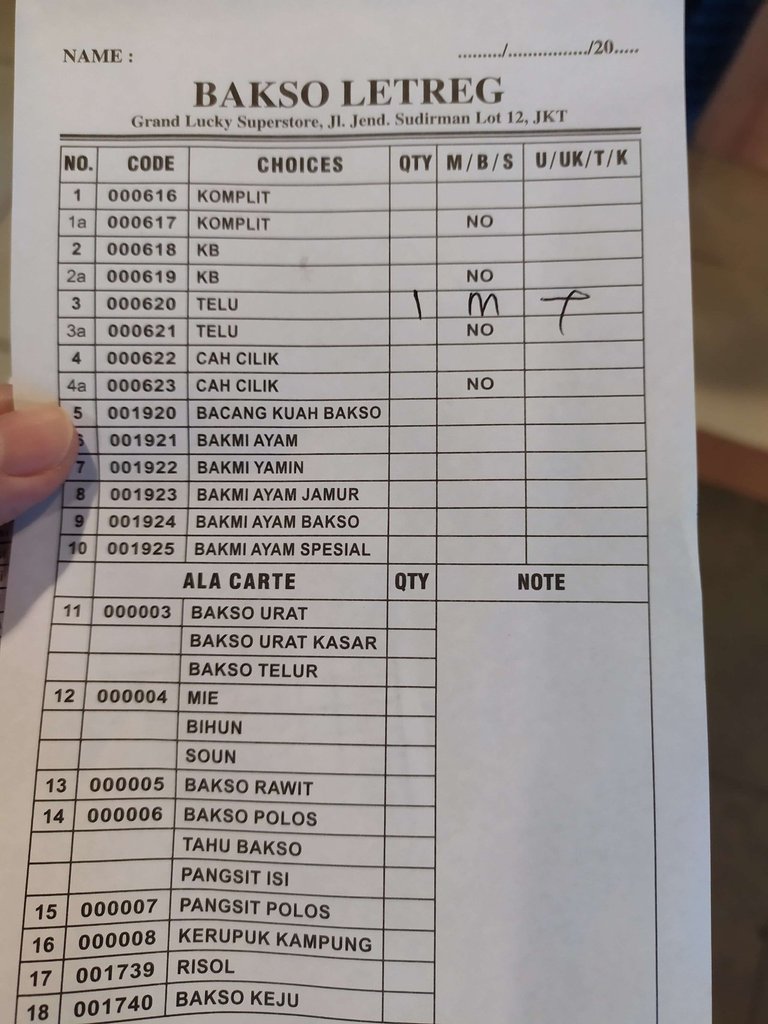 NAME : ........./................/20.....
BAKSO LETREG
Grand Lucky Superstore, Jl. Jend. Sudirman Lot 12, JKT
NO. CODE CHOICES QTY M/B/S U/UK/T/K
1 000616 KOMPLIT
1a 000617 KOMPLIT NO
2 000618 KB
2a 000619 KB NO
3 000620 TELU 1 M T
3a 000621 TELU NO
4 000622 CAH CILIK
4a 000623 CAH CILIK NO
5 001920 BACANG KUAH BAKSO
6 001921 BAKMI AYAM
7 001922 BAKMI YAMIN
8 001923 BAKMI AYAM JAMUR
9 001924 BAKMI AYAM BAKSO
10 001925 BAKMI AYAM SPESIAL
ALA CARTE QTY NOTE
11 000003 BAKSO URAT
BAKSO URAT KASAR
BAKSO TELUR
12 000004 MIE
BIHUN
SOUN
13 000005 BAKSO RAWIT
14 000006 BAKSO POLOS
TAHU BAKSO
PANGSIT ISI
15 000007 PANGSIT POLOS
16 000008 KERUPUK KAMPUNG
17 001739 RISOL
18 001740 BAKSO KEJU